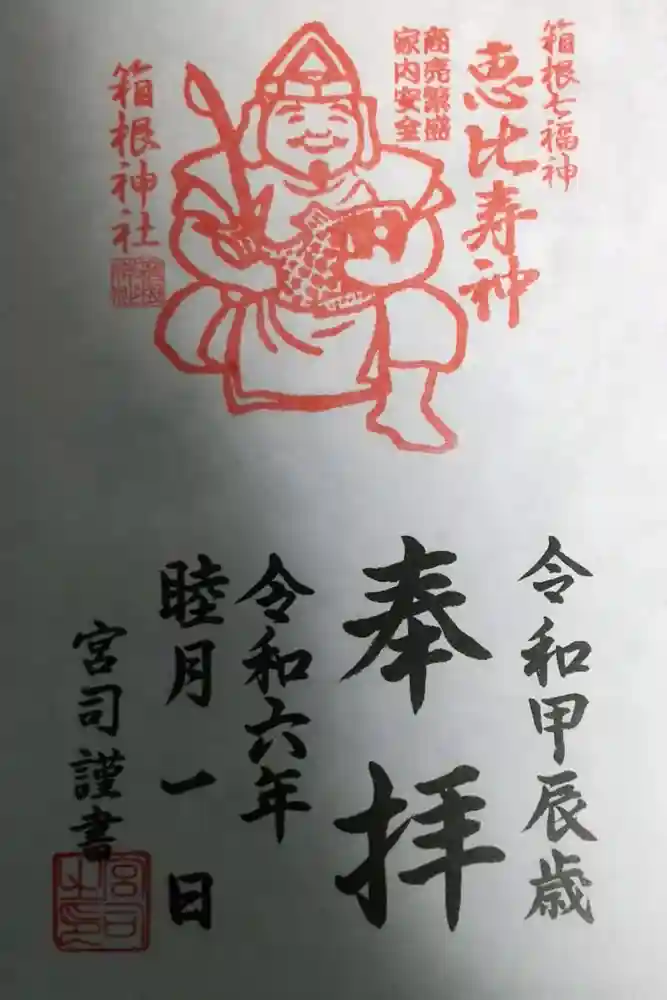 箱根七福神
恵比寿神
商売繁盛
家内安全
箱根神社
令和甲辰歳
奉拝
令和六年
睦月一日
宮司謹書